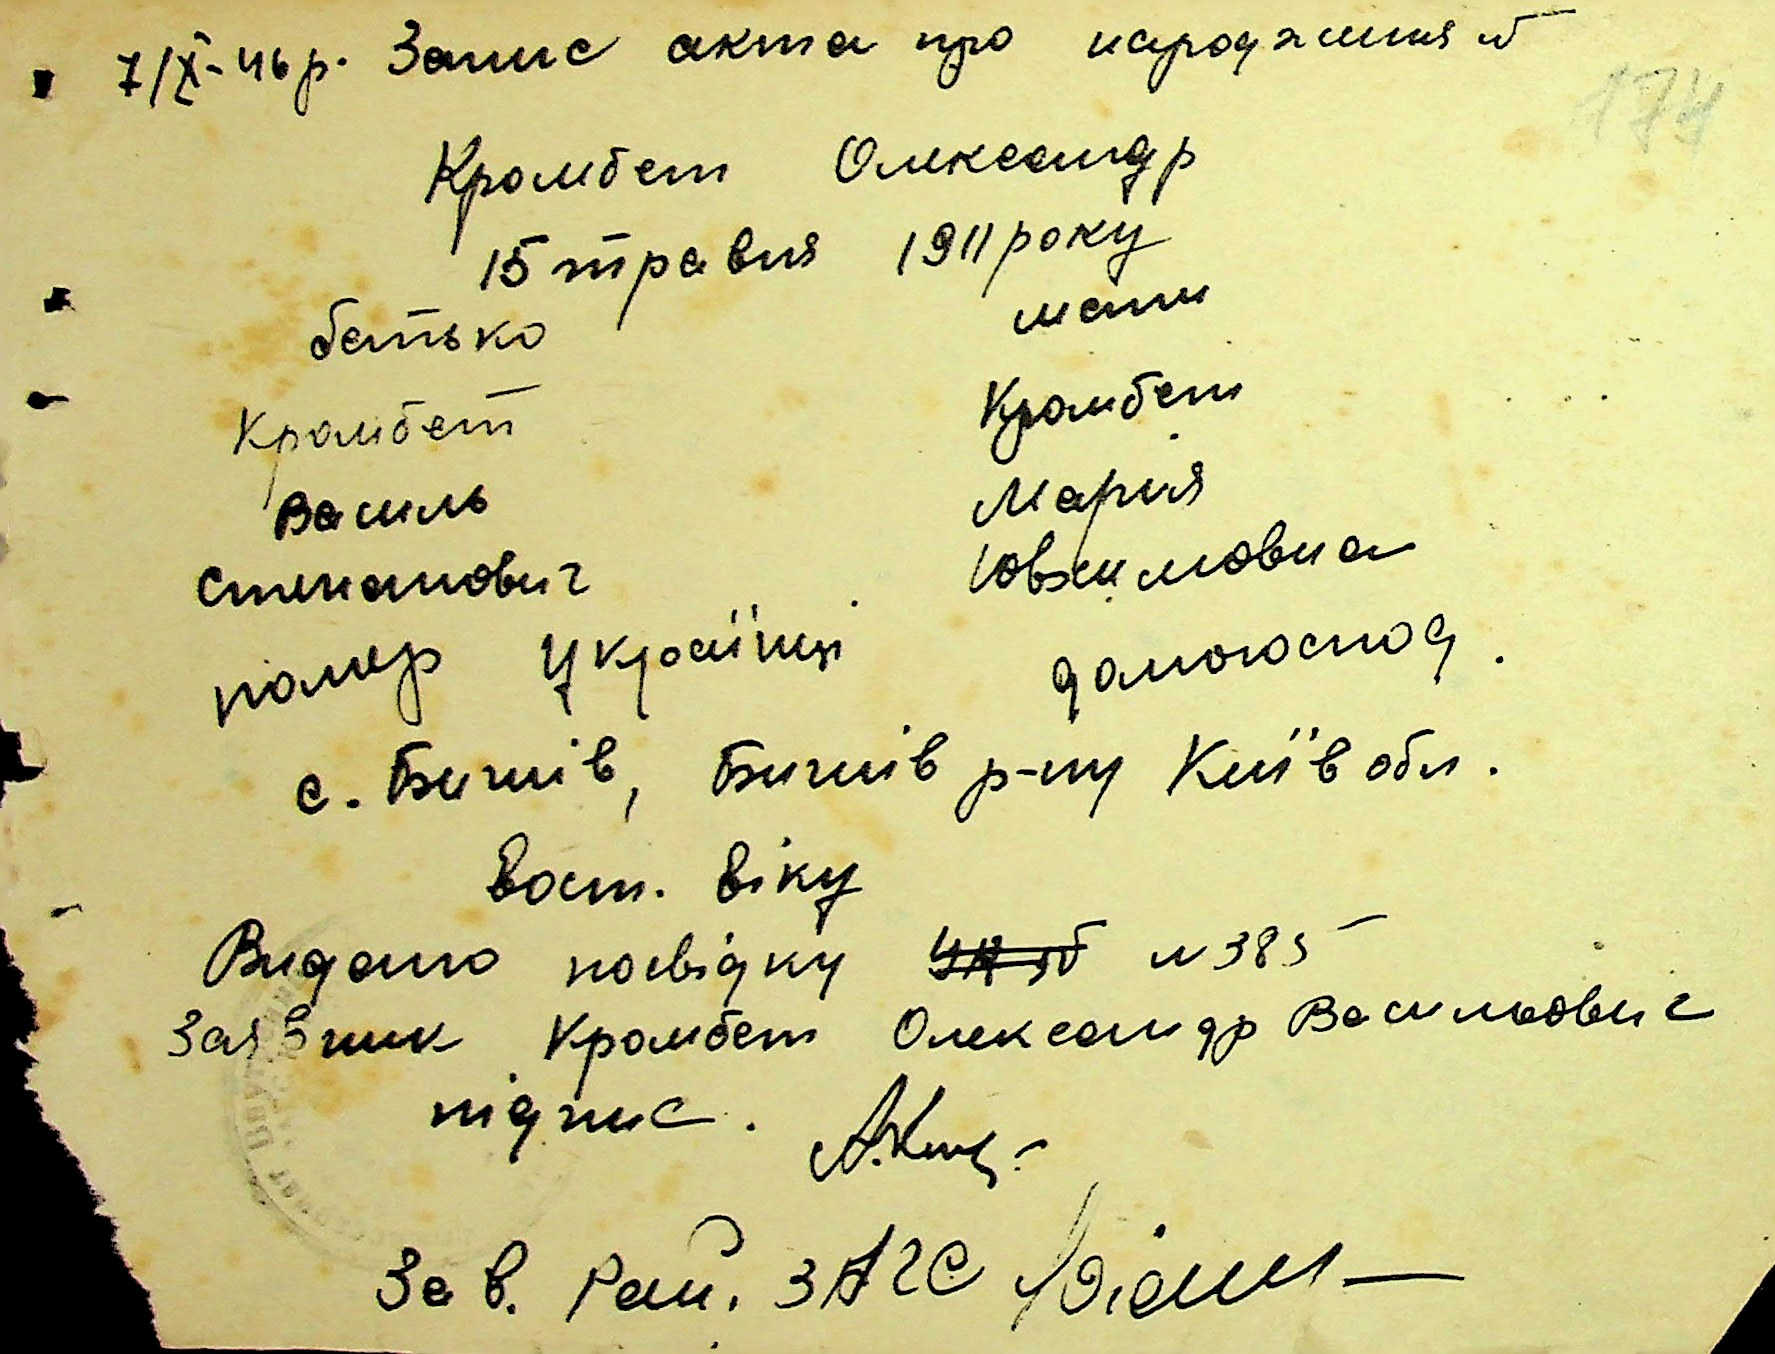 7/X-46 р. Запис акта про народження №
174
Кромбет Олександр
15 травня 1911 року
батько мати
Кромбет Кромбет
Василь Марія
Степанович Ювхимовна
помер Українці домогоспод.
с. Бишів, Бишів р-ну Київ обл.
вост. віку
Видано посвідку № 385
Заявник Кромбет Олександр Васильович
підпис.
Зав. Рай. ЗАГС